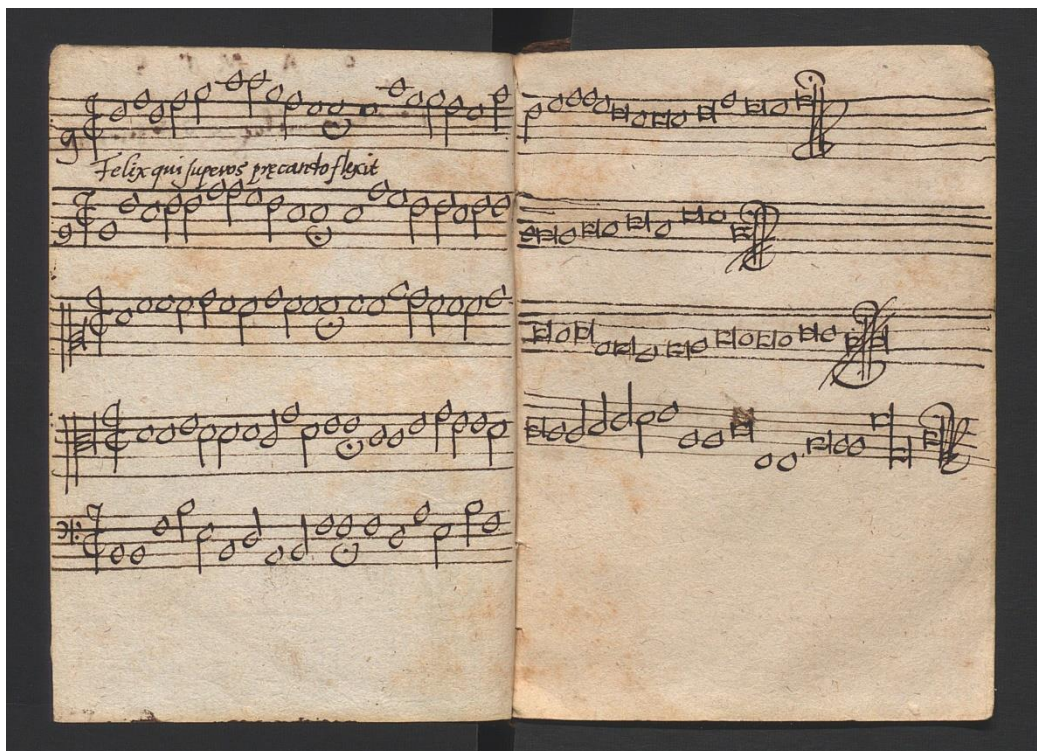 Felix qui superos pręcanto flexit